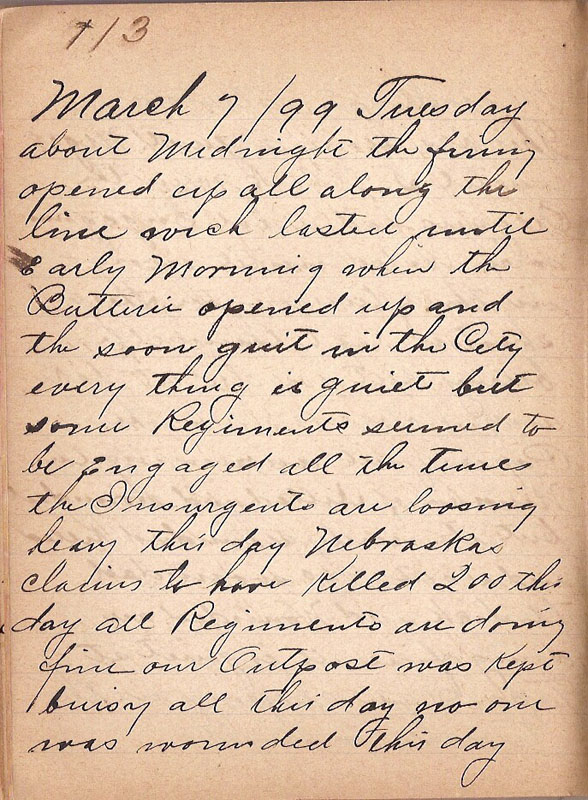 113
March 7/99 Tuesday
about Midnight the firing
opened up all along the
line wich lasted until
Early Morning when the
Batterie opened up and
the soon quit in the City
every thing is quiet but
some Regiments seemed to
be Engaged all the times
the Insurgents are loosing
heavy this day Nebraskas
claims to have Killed 200 this
day all Regiments are doing
fine our Outpost was Kept
buisy all this day no one
was wounded this day